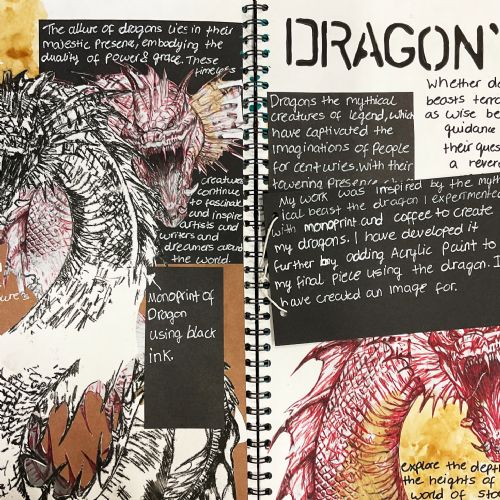 The allure of dragons lies in their
majestic presense, embodying the
duality of Power & grace. These
timeless
creatures
continue
to fascinate
and inspire
artists and
writers and
dreamers around
the world.
Monoprint of
Dragon
using black
ink.
DRAGON'
Whether
beasts
as wise
guidance
their
a
Dragons the mythical
creatures of legend, which
have captivated the
imaginations of People
for centuries. With their
towering Presence
My work was inspired by the myth
ical beast the dragon I experimented
with monoprint and coffee to create
my dragons. I have developed it
further by adding Acrylic Paint to
my final piece using the dragon. I
have created an image for.
explore the
the heights of
world of